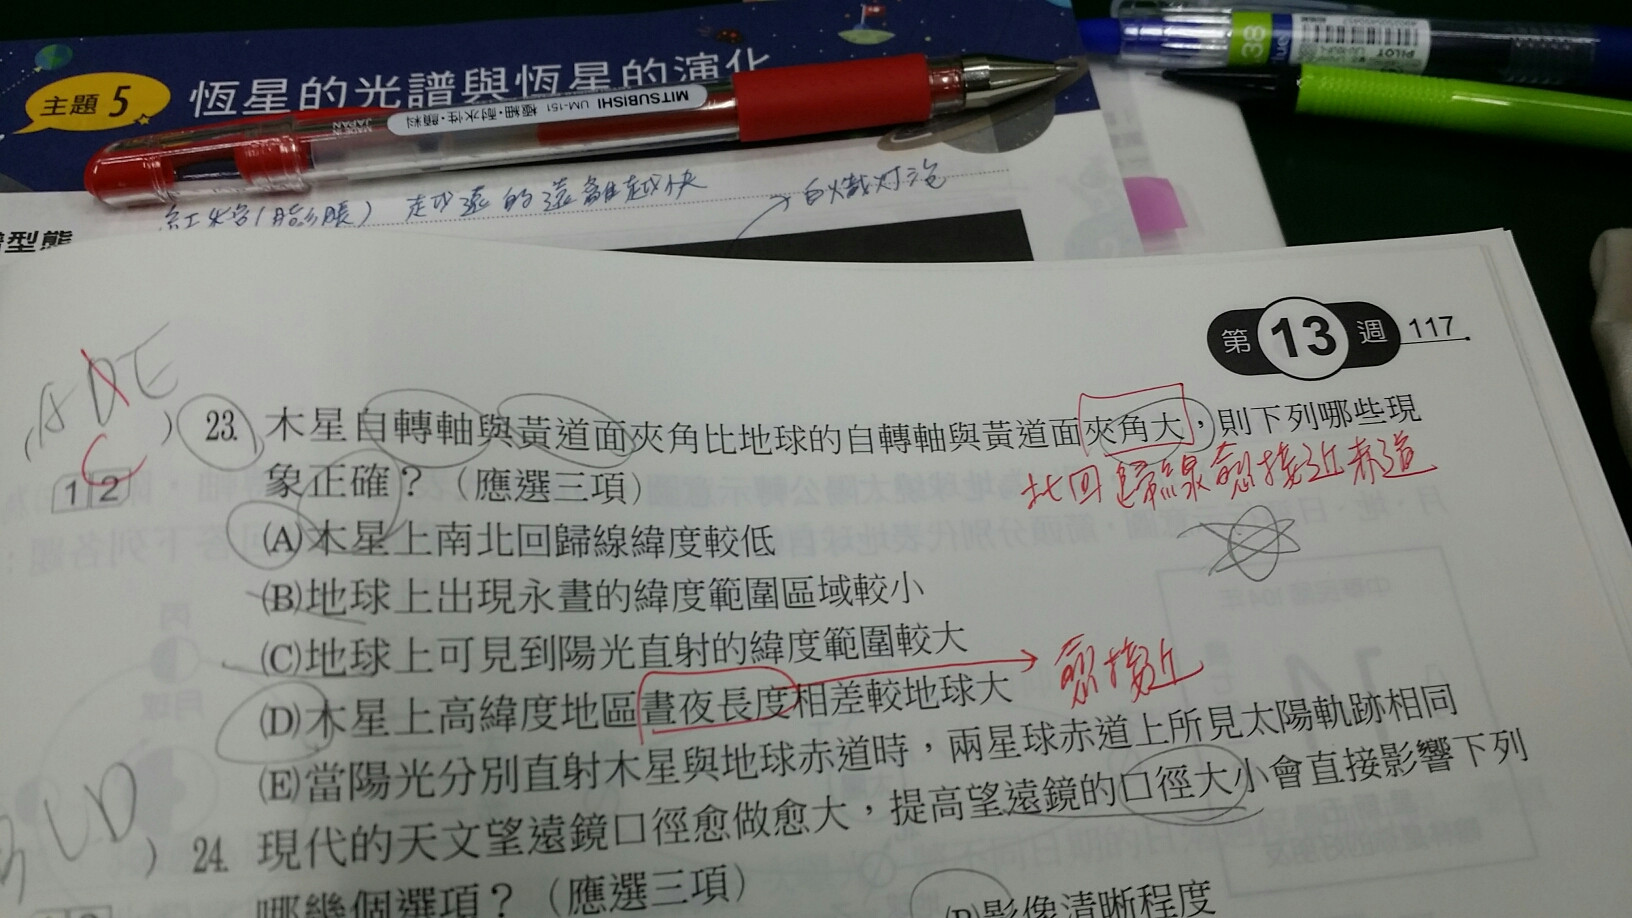 主題5 恆星的光譜與恆星的演化
MITSUBISHI UM-151 極細・耐水性・顏料
MADE IN JAPAN
PILOT
38
越遠的遠離越快
白熾灯泡
型態
第13週 117
ADE
C
12
) 23. 木星自轉軸與黃道面夾角比地球的自轉軸與黃道面夾角大，則下列哪些現
象正確？（應選三項）
北回歸線愈接近赤道
(A)木星上南北回歸線緯度較低
(B)地球上出現永晝的緯度範圍區域較小
(C)地球上可見到陽光直射的緯度範圍較大
(D)木星上高緯度地區晝夜長度相差較地球大
愈接近
(E)當陽光分別直射木星與地球赤道時，兩星球赤道上所見太陽軌跡相同
BCD
) 24. 現代的天文望遠鏡口徑愈做愈大，提高望遠鏡的口徑大小會直接影響下列
哪幾個選項？（應選三項）
(B)影像清晰程度